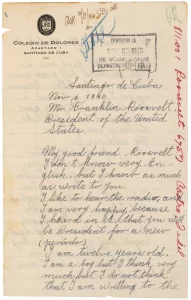 COLEGIO DE DOLORES
APARTADO 1
SANTIAGO DE CUBA
Santiago de Cuba
Nov 6 1940
Mr. Franklin Roosevelt,
President of the United
States
My good friend Roosevelt
I don't know very En-
glish, but I know as much
as write to you.
I like to hear the radio, and
I am very happy, because
I heard in it, that you will
be President for a new
(periodo)
I am twelve years old.
I am a boy but I think very
much but I do not think
that I am writting to the